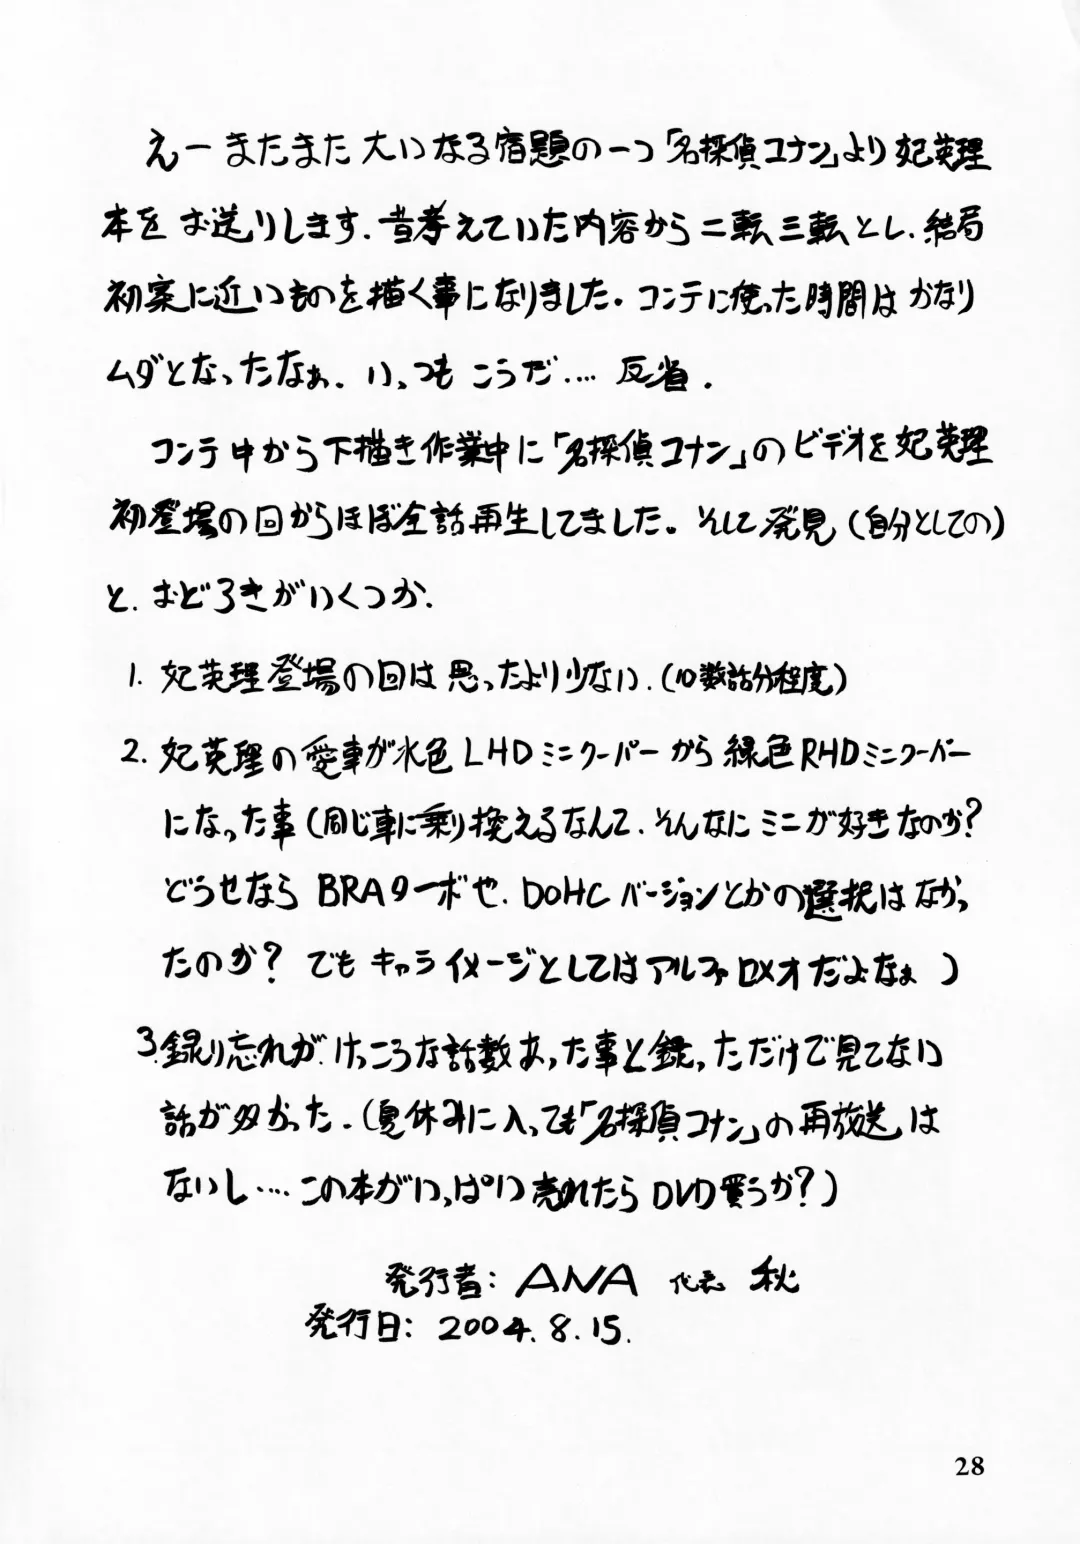 えーまたまた大いなる宿題の一つ「名探偵コナン」より妃英理
本をお送りします.昔考えていた内容から二転三転とし.結局
初案に近いものを描く事になりました。コンテに使った時間はかなり
ムダとなったなぁ.いっつもこうだ….反省.
コンテ中から下描き作業中に「名探偵コナン」のビデオを妃英理
初登場の回からほぼ全話再生してました。そして発見(自分としての)
と.おどろきがいくつか.
1.妃英理登場の回は思ったより少ない.(10数話分程度)
2.妃英理の愛車が水色LHDミニクーパーから緑色RHDミニクーパー
になった事(同じ車に乗り換えるなんて.そんなにミニが好きなのか?
どうせならBRAターボや.DOHCバージョンとかの選択はなかっ
たのか?でもキャライメージとしてはアルファロメオだよなぁ)
3.録り忘れが.けっこうな話数あった事と録っただけで見てない
話が多かった.(夏休みに入っても「名探偵コナン」の再放送は
ないし….この本がいっぱい売れたらDVD買うか?)
発行者:ANA 代表 秋
発行日:2004.8.15.
28